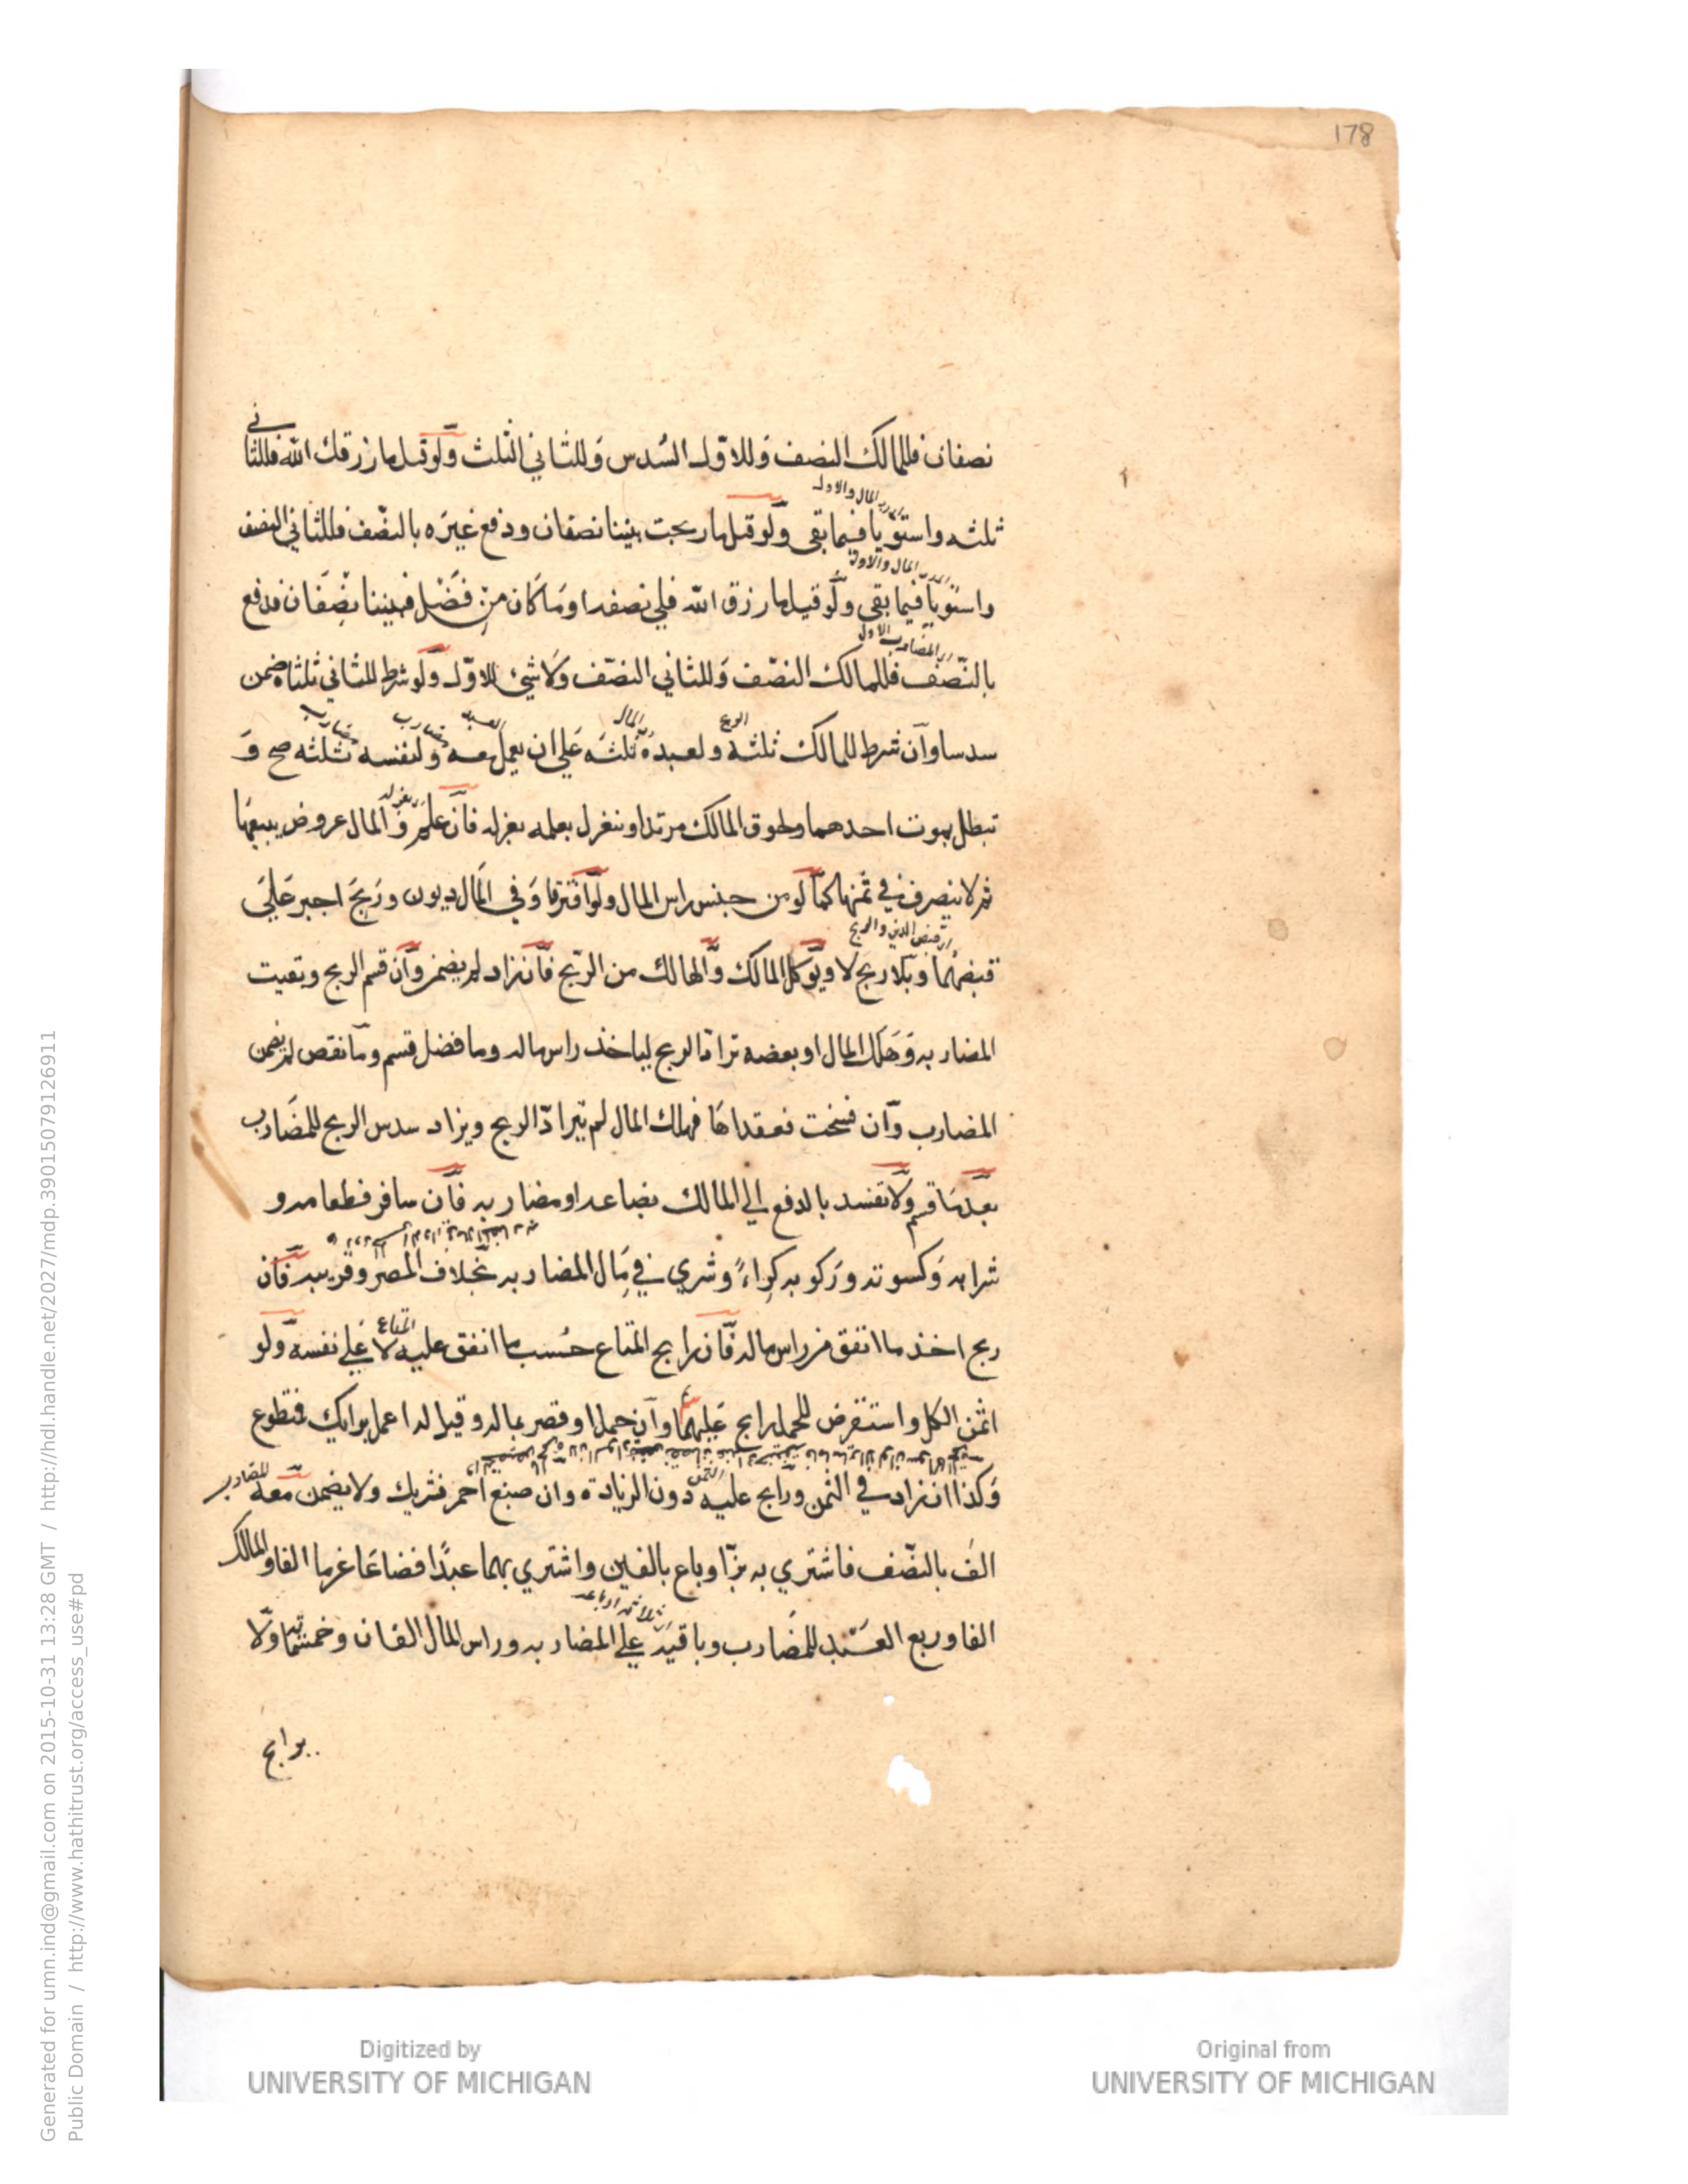 178
نصفان فللمالك النصف وللاوّل السُدس وَللثاني الثلث ولو قيل ما رزقك الله فللثاني
ثلثه واستويا فيما بقى ولو قيل ما ربحت بيننا نصفان ودفع غيرَه بالنصّف فللثاني النصف
واستويا فيما بقى ولو قيل ما رزق الله فلي نصفه او مَا كَان من فضْل فبيننا نصْفَان فدفع
بالنّصف فللمالك النصّف وَللثاني النصّف وَلا شئ للاوّل ولو شرط للثاني ثلثاه ضمن
سدسا وان شرط للمالك ثلثه ولعبده ثلثه عَلي ان يعمل معه ولنفسه ثلثه صح وَ
تبطل بموت احدهما ولحوق المالك مرتدا وينعزل بعلمه بعزله فان علم و المال عروض يبيعها
ثم لا يتصرف في ثمنها كما لو من جنس راس المال ولو افترقا وَفي المَال ديون ورَبِحَ اجبر عَلَي
قبضها وبلا ربح لا ويوكل المالك والهالك من الربّح فان زاد لم يضمن وان قسم الربح وبقيت
المضاربه وَهَلك المال او بعضه ترادّا الربح لياخذ راس ماله وما فضل قسم وما نقص لم يضمن
المضارب وان فسخت فعقداهَا فهلك المال لم يترادّ الربح ويزاد سدس الربح للمضَارب
ولا تفسد بالدفع الي المالك بضاعه او مضاربه فان سافر فطعامه و
شرابه وَكسوته ورَكوبه كِراءً وشري في مَال المضاربه بخلاف المصر وقريبه فان
ربح اخذ ما انفق من راس ماله فان رابح المتاع حُسب ما انفق عليه لا عَلي نفسه ولو
الكل واستقرض للحمل رابح عَليهما وان حمل او قصر بماله و قيل له اعمل برايك فتطوع
وَكذا ان زاد في الثمن ورابح عليه دون الزيادة وان صبغ احمر فشريك ولا يضمن معه
الف بالنصّف فاشتري به بزّا وباع بالفين واشتري بهما عبدًا فضاعَا غرما الفا والمالك
الفا وربع العَبْد للمضَارب وباقيه علي المضاربه وراس المال الفان وخمسمائه ولا
يرابح
Generated for umn.ind@gmail.com on 2015-10-31 13:28 GMT / http://hdl.handle.net/2027/mdp.39015079126911
Public Domain / http://www.hathitrust.org/access_use#pd
Digitized by
UNIVERSITY OF MICHIGAN
Original from
UNIVERSITY OF MICHIGAN